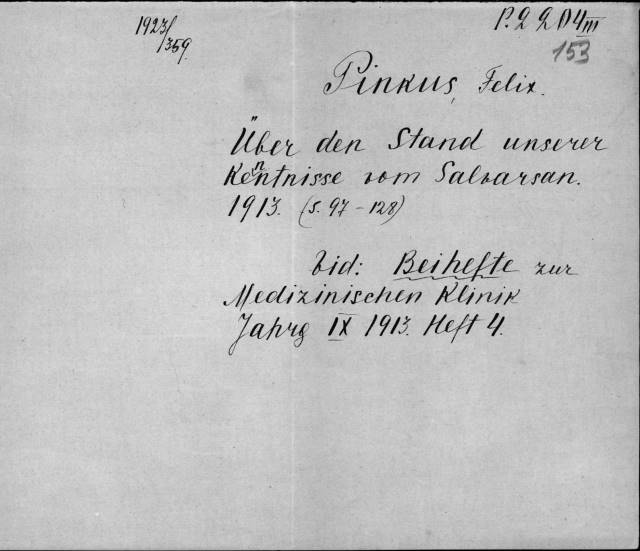 1923/
/359.
P. 2204 III
153
Pinkus, Felix.
Über den Stand unserer
Kenntnisse vom Salvarsan.
1913. (S. 97-128)
bid: Beihefte zur
Medizinischen Klinik
Jahrg IX 1913. Heft 4.